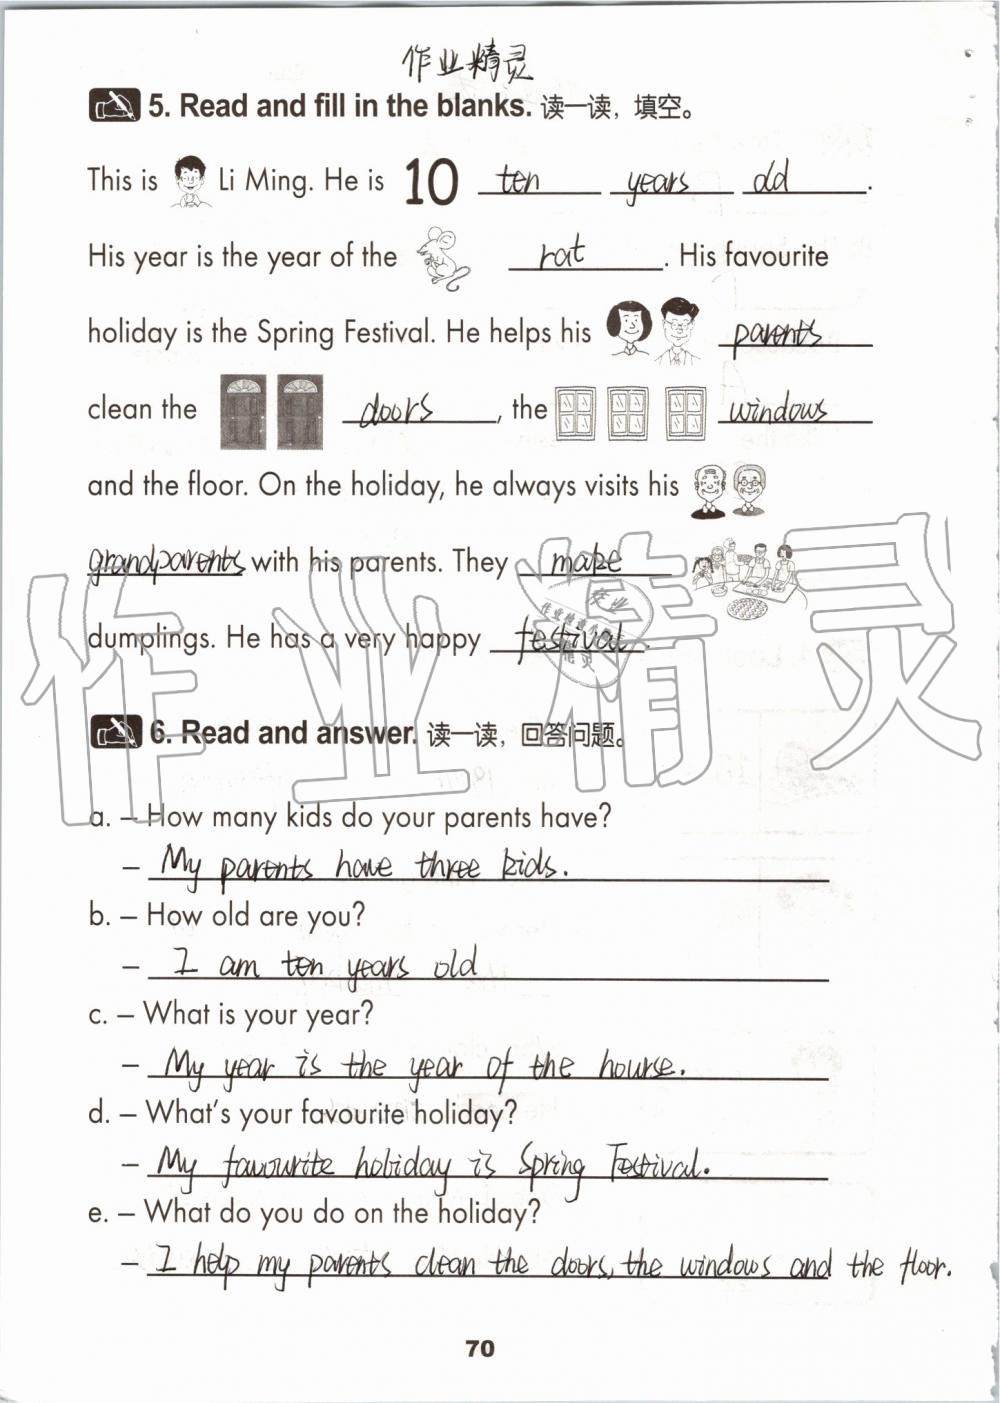 作业精灵
5. Read and fill in the blanks. 读一读，填空。
This is Li Ming. He is 10 ten years old.
His year is the year of the rat. His favourite
holiday is the Spring Festival. He helps his parents
clean the doors, the windows
and the floor. On the holiday, he always visits his
grandparents with his parents. They make
dumplings. He has a very happy festival.
作业精灵
6. Read and answer. 读一读，回答问题。
a. – How many kids do your parents have?
– My parents have three kids.
b. – How old are you?
– I am ten years old
c. – What is your year?
– My year is the year of the hourse.
d. – What's your favourite holiday?
– My favourite holiday is Spring Festival.
e. – What do you do on the holiday?
– I help my parents clean the doors, the windows and the floor.
70